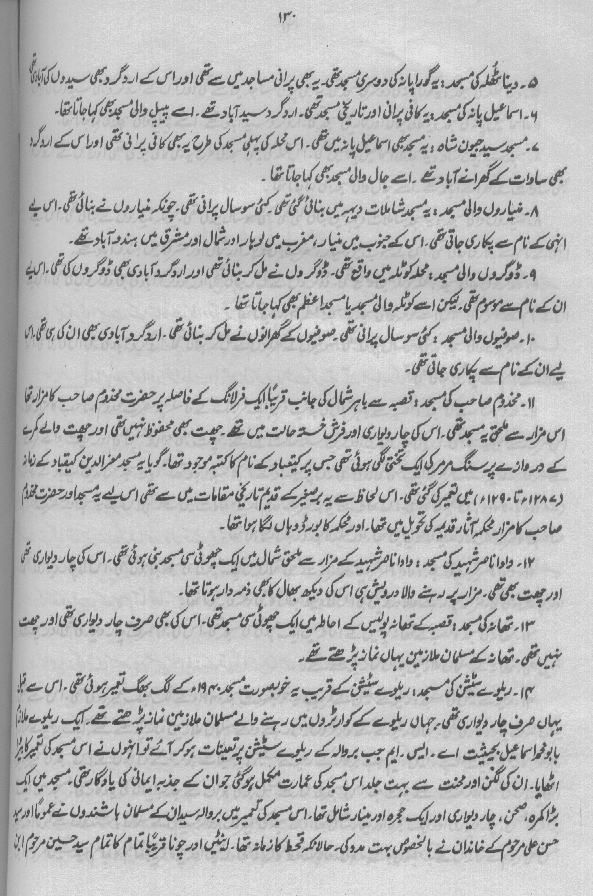 ۱۳۰
۵۔ دینا ٹھُلہ کی مسجد: یہ گورا پانہ کی دوسری مسجد تھی۔ یہ بھی پرانی مساجد میں سے تھی اور اس کے اردگرد بھی سیدوں کی آبادی تھی
۶۔ اسماعیل پانہ کی مسجد: یہ کافی پرانی اور تاریخی مسجد تھی۔ اردگرد سید آباد تھے۔ اسے پیپل والی مسجد بھی کہا جاتا تھا۔
۷۔ مسجد سید جیون شاہ: یہ مسجد بھی اسماعیل پانہ میں تھی۔ اس محلہ کی پہلی مسجد کی طرح یہ بھی کافی پرانی تھی اور اس کے اردگرد
بھی سادات کے گھرانے آباد تھے۔ اسے جال والی مسجد بھی کہا جاتا تھا۔
۸۔ منیاروں والی مسجد: یہ مسجد شاملات دیہہ میں بنائی گئی تھی۔ کئی سو سال پرانی تھی۔ چونکہ منیاروں نے بنائی تھی۔ اس لیے
انہی کے نام سے پکاری جاتی تھی۔ اس کے جنوب میں منیار، مغرب میں لوہار اور شمال اور مشرق میں ہندو آباد تھے۔
۹۔ ڈوگروں والی مسجد: محلہ کوٹلہ میں واقع تھی۔ ڈوگروں نے مل کر بنائی تھی اور اردگرد آبادی بھی ڈوگروں کی تھی۔ اس لیے
ان کے نام سے موسوم تھی۔ لیکن اسے کوٹلہ والی مسجد یا مسجد اعظم بھی کہا جاتا تھا۔
۱۰۔ صوفیوں والی مسجد: کئی سو سال پرانی تھی۔ صوفیوں کے گھرانوں نے مل کر بنائی تھی۔ اردگرد آبادی بھی ان کی ہی تھی۔ اس
لیے ان کے نام سے پکاری جاتی تھی۔
۱۱۔ مخدوم صاحب کی مسجد: قصبہ سے باہر شمال کی جانب قریباً ایک فرلانگ کے فاصلہ پر حضرت مخدوم صاحب کا مزار تھا
اس مزار سے ملحق یہ مسجد تھی۔ اس کی چار دیواری اور فرش خستہ حالت میں تھے۔ چھت بھی محفوظ نہیں تھی اور چھت والے کمرے
کے دروازے پر سنگ مرمر کی ایک تختی لگی ہوئی تھی جس پر کیقباد کے نام کا کتبہ موجود تھا۔ گویا یہ مسجد معز الدین کیقباد کے زمانہ
(۱۲۸۷ء تا ۱۲۹۰ء) میں تعمیر کی گئی تھی۔ اس لحاظ سے یہ برصغیر کے قدیم تاریخی مقامات میں سے تھی اس لیے یہ مسجد اور حضرت مخدوم
صاحب کا مزار محکمہ آثار قدیمہ کی تحویل میں تھا۔ اور محکمہ کا بورڈ وہاں لگا ہوا تھا۔
۱۲۔ دادا ناصر شہید کی مسجد: دادا ناصر شہید کے مزار سے ملحق شمال میں ایک چھوٹی سی مسجد بنی ہوئی تھی۔ اس کی چار دیواری تھی
اور چھت بھی تھی۔ مزار پر رہنے والا درویش ہی اس کی دیکھ بھال کا بھی ذمہ دار ہوتا تھا۔
۱۳۔ تھانہ کی مسجد: قصبہ کے تھانہ پولیس کے احاطہ میں ایک چھوٹی سی مسجد تھی۔ اس کی بھی صرف چار دیواری تھی اور چھت
نہیں تھی۔ تھانہ کے مسلمان ملازمین یہاں نماز پڑھتے تھے۔
۱۴۔ ریلوے سٹیشن کی مسجد: ریلوے سٹیشن کے قریب یہ خوبصورت مسجد ۱۹۴۰ء کے لگ بھگ تعمیر ہوئی تھی۔ اس سے قبل
یہاں صرف چار دیواری تھی۔ جہاں ریلوے کے کوارٹروں میں رہنے والے مسلمان ملازمین نماز پڑھتے تھے۔ ایک ریلوے ملازم
بابو محمد اسماعیل بحیثیت اے۔ ایس۔ ایم جب بروالہ کے ریلوے سٹیشن پر تعینات ہو کر آئے تو انہوں نے اس مسجد کی تعمیر کا بیڑا
اٹھایا۔ ان کی لگن اور محنت سے بہت جلد اس مسجد کی عمارت مکمل ہو گئی جو ان کے جذبہ ایمانی کی یادگار تھی۔ مسجد میں ایک
بڑا کمرہ، صحن، چار دیواری اور ایک حجرہ اور مینار شامل تھا۔ اس مسجد کی تعمیر میں بروالہ سیدان کے مسلمان باشندوں نے عموماً اور سید
حسن علی مرحوم کے خاندان نے بالخصوص بہت مدد کی۔ حالانکہ قحط کا زمانہ تھا۔ اینٹیں اور چونا قریباً تمام کا تمام سید حسین مرحوم ابن